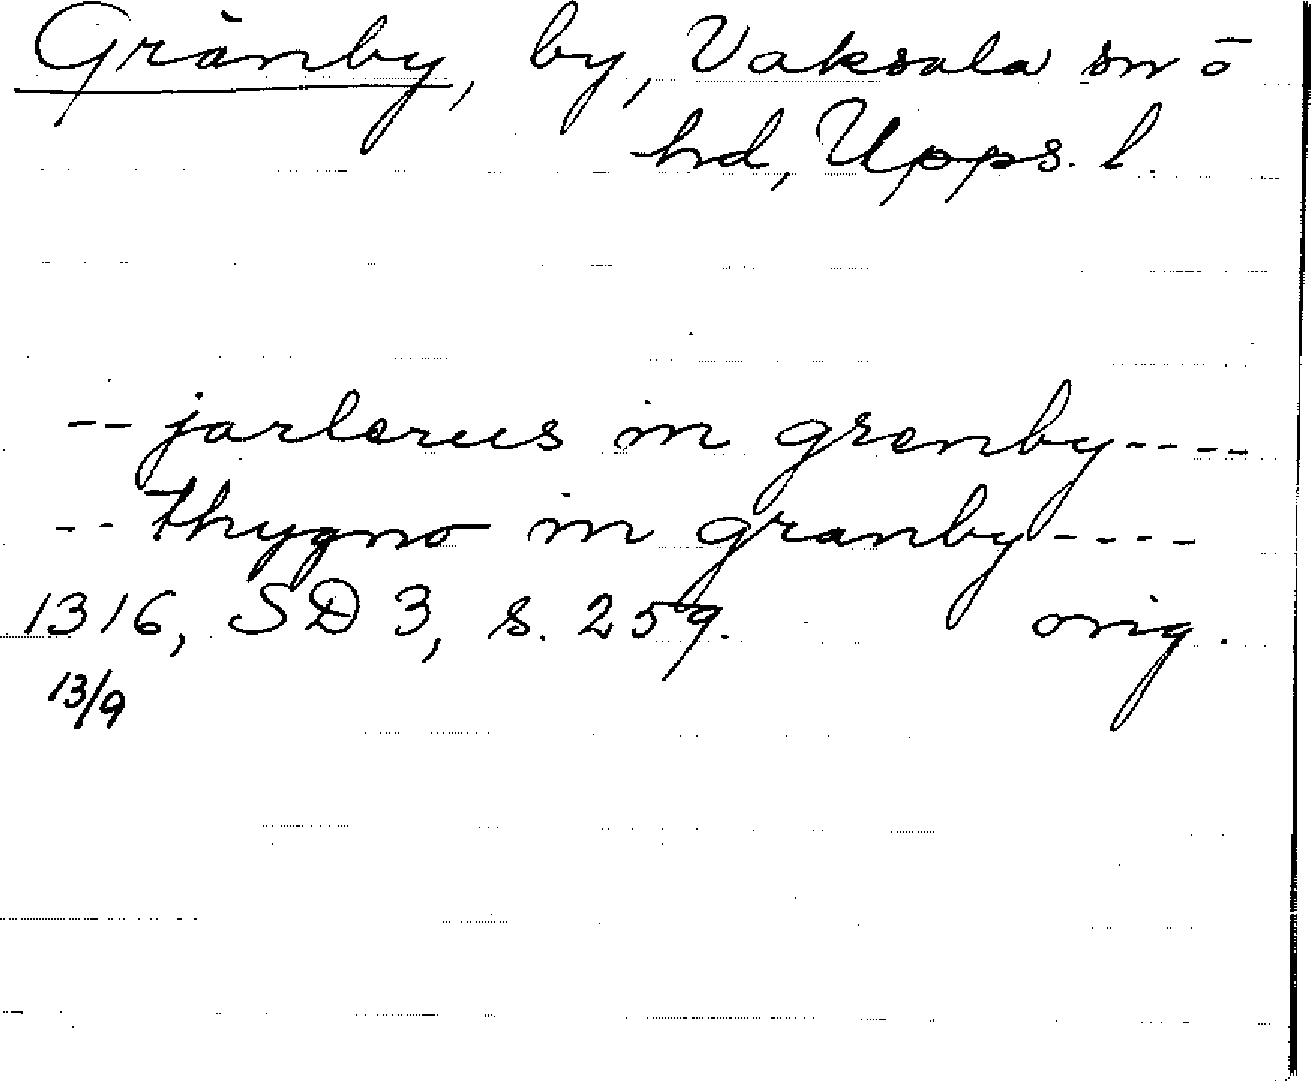 Gränby, by, Vaksala sn o
hd, Upps. l.
-- jarlerus in grenby----
-- thygno in granby----
1316, SD 3, s. 259. orig.
13/9